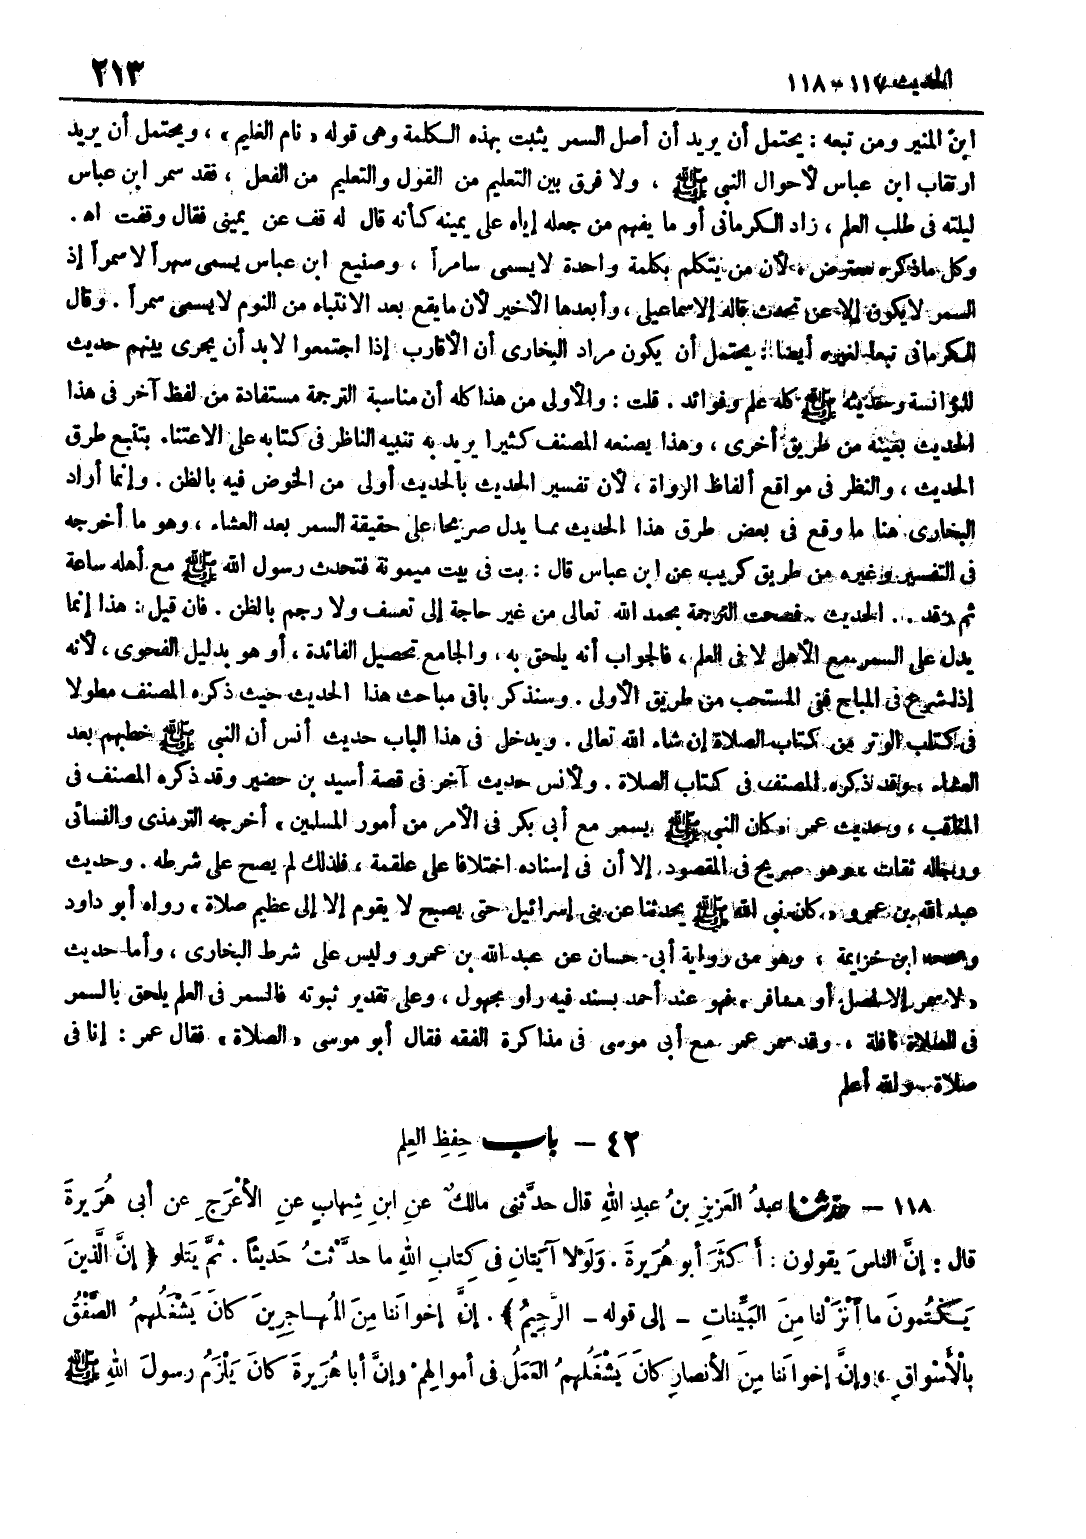 الحديث ١١٧ - ١١٨ ٢١٣
ابن المنير ومن تبعه : يحتمل أن يريد أن أصل السمر يثبت بهذه الكلمة وهى قوله « نام الغليم » ، ويحتمل أن يريد
ارتقاب ابن عباس لأحوال النبى ﷺ ، ولا فرق بين التعليم من القول والتعليم من الفعل ، فقد سمر ابن عباس
ليلته فى طلب العلم ، زاد الكرمانى أو ما يفهم من جعله إياه على يمينه كأنه قال له قف عن يمينى فقال وقفت اه .
وكل ما ذكره معترض ، لأن من يتكلم بكلمة واحدة لا يسمى سامراً ، وصنيع ابن عباس يسمى سهراً لا سمراً إذ
السمر لا يكون إلا عن تحدث قاله الإسماعيلى ، وأبعدها الأخير لأن ما يقع بعد الانتباه من النوم لا يسمى سمراً . وقال
الكرمانى تبعا لغيره أيضا : يحتمل أن يكون مراد البخارى أن الأقارب إذا اجتمعوا لابد أن يجرى بينهم حديث
للمؤانسة وحديثه ﷺ كله علم وفوائد . قلت : والأولى من هذا كله أن مناسبة الترجمة مستفادة من لفظ آخر فى هذا
الحديث بعينه من طريق أخرى ، وهذا يصنعه المصنف كثيرا يريد به تنبيه الناظر فى كتابه على الاعتناء بتتبع طرق
الحديث ، والنظر فى مواقع ألفاظ الرواة ، لأن تفسير الحديث بالحديث أولى من الخوض فيه بالظن . وإنما أراد
البخارى هنا ما وقع فى بعض طرق هذا الحديث مما يدل صريحا على حقيقة السمر بعد العشاء ، وهو ما أخرجه
فى التفسير وغيره من طريق كريب عن ابن عباس قال : بت فى بيت ميمونة فتحدث رسول الله ﷺ مع أهله ساعة
ثم رقد . . الحديث . فصحت الترجمة بحمد الله تعالى من غير حاجة إلى تعسف ولا رجم بالظن . فان قيل : هذا إنما
يدل على السمر مع الأهل لا فى العلم ، فالجواب أنه يلحق به ، والجامع تحصيل الفائدة ، أو هو بدليل الفحوى ، لأنه
إذا شرع فى المباح ففى المستحب من طريق الأولى . وسنذكر باقى مباحث هذا الحديث حيث ذكره المصنف مطولا
فى كتاب الوتر من كتاب الصلاة إن شاء الله تعالى . ويدخل فى هذا الباب حديث أنس أن النبى ﷺ خطبهم بعد
العشاء ، وقد ذكره المصنف فى كتاب الصلاة . ولأنس حديث آخر فى قصة أسيد بن حضير وقد ذكره المصنف فى
المناقب ، وحديث عمر « كان النبى ﷺ يسمر مع أبى بكر فى الأمر من أمور المسلمين » أخرجه الترمذى والنسائى
ورجاله ثقات ، وهو صريح فى المقصود إلا أن فى إسناده اختلافا على علقمة ، فلذلك لم يصح على شرطه . وحديث
عبد الله بن عمرو « كان نبى الله ﷺ يحدثنا عن بنى إسرائيل حتى يصبح لا يقوم إلا إلى عظيم صلاة » رواه أبو داود
وصححه ابن خزيمة ، وهو من رواية أبى حسان عن عبد الله بن عمرو وليس على شرط البخارى ، وأما حديث
« لا سمر إلا لمصل أو مسافر » فهو عند أحمد بسند فيه راو مجهول ، وعلى تقدير ثبوته فالسمر فى العلم يلحق بالسمر
فى الصلاة نافلة ، وقد سمر عمر مع أبى موسى فى مذاكرة الفقه فقال أبو موسى « الصلاة » فقال عمر : إنا فى
صلاة . والله أعلم
٤٢ - باب حِفظِ العِلمِ
١١٨ - حدثنا عبدُ العَزيزِ بنُ عبدِ اللهِ قال حدَّثنى مالكٌ عنِ ابنِ شِهابٍ عنِ الأعْرَجِ عن أبى هُرَيرةَ
قال : إنَّ الناسَ يقولون : أكثَرَ أبو هُرَيرةَ . وَلَوْلا آيَتانِ فى كِتابِ اللهِ ما حدَّثتُ حَديثاً . ثمَّ يَتلو ﴿ إنَّ الَّذينَ
يَكْتُمونَ ما أَنْزَلْنا مِنَ البَيِّناتِ - إلى قوله - الرَّحِيمُ ﴾ . إنَّ إخوانَنا مِنَ المُهاجِرِينَ كانَ يَشْغَلُهمُ الصَّفْقُ
بِالْأَسْواقِ ، وإنَّ إخوانَنا مِنَ الأنصارِ كانَ يَشْغَلُهمُ العَمَلُ فى أموالِهِمْ وإنَّ أبا هُرَيرةَ كانَ يَلْزَمُ رسولَ اللهِ ﷺ